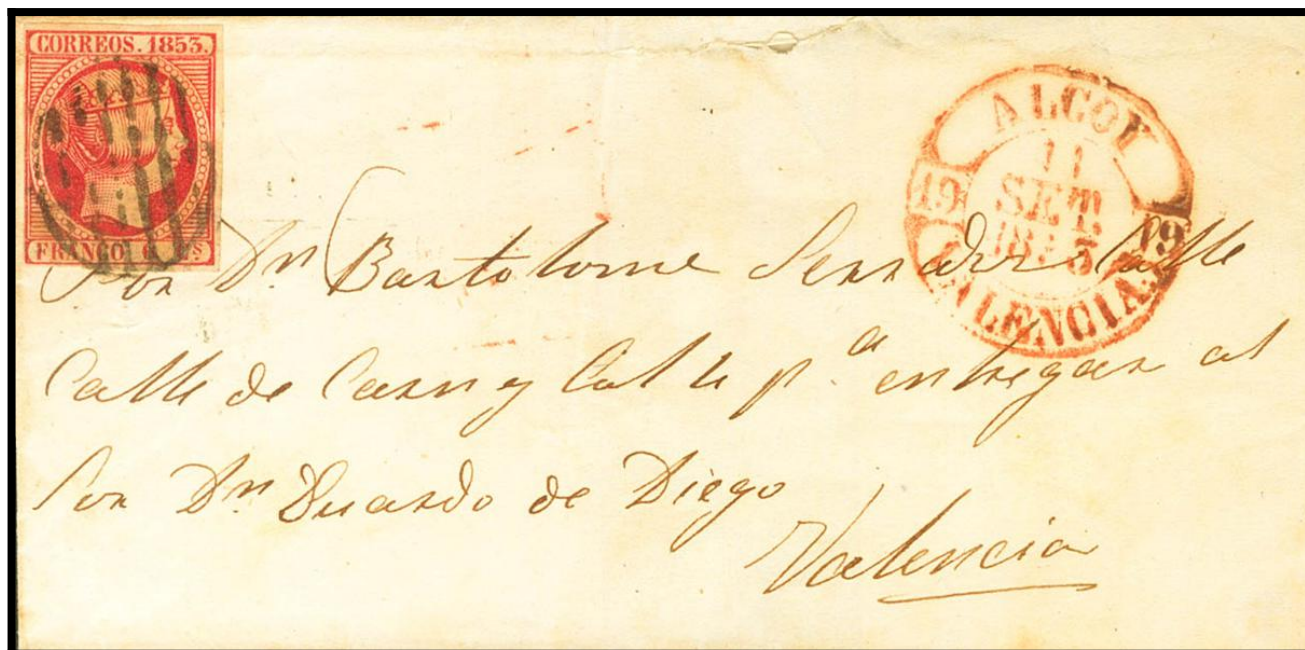 CORREOS. 1853.
FRANCO. 6 Cs
ALCOY
11
SET.
18 3
19 19
VALENCIA.
Sor Dn Bartolome calle
Calle de p.a entregar al
Sor Dn Duardo de Diego
Valencia